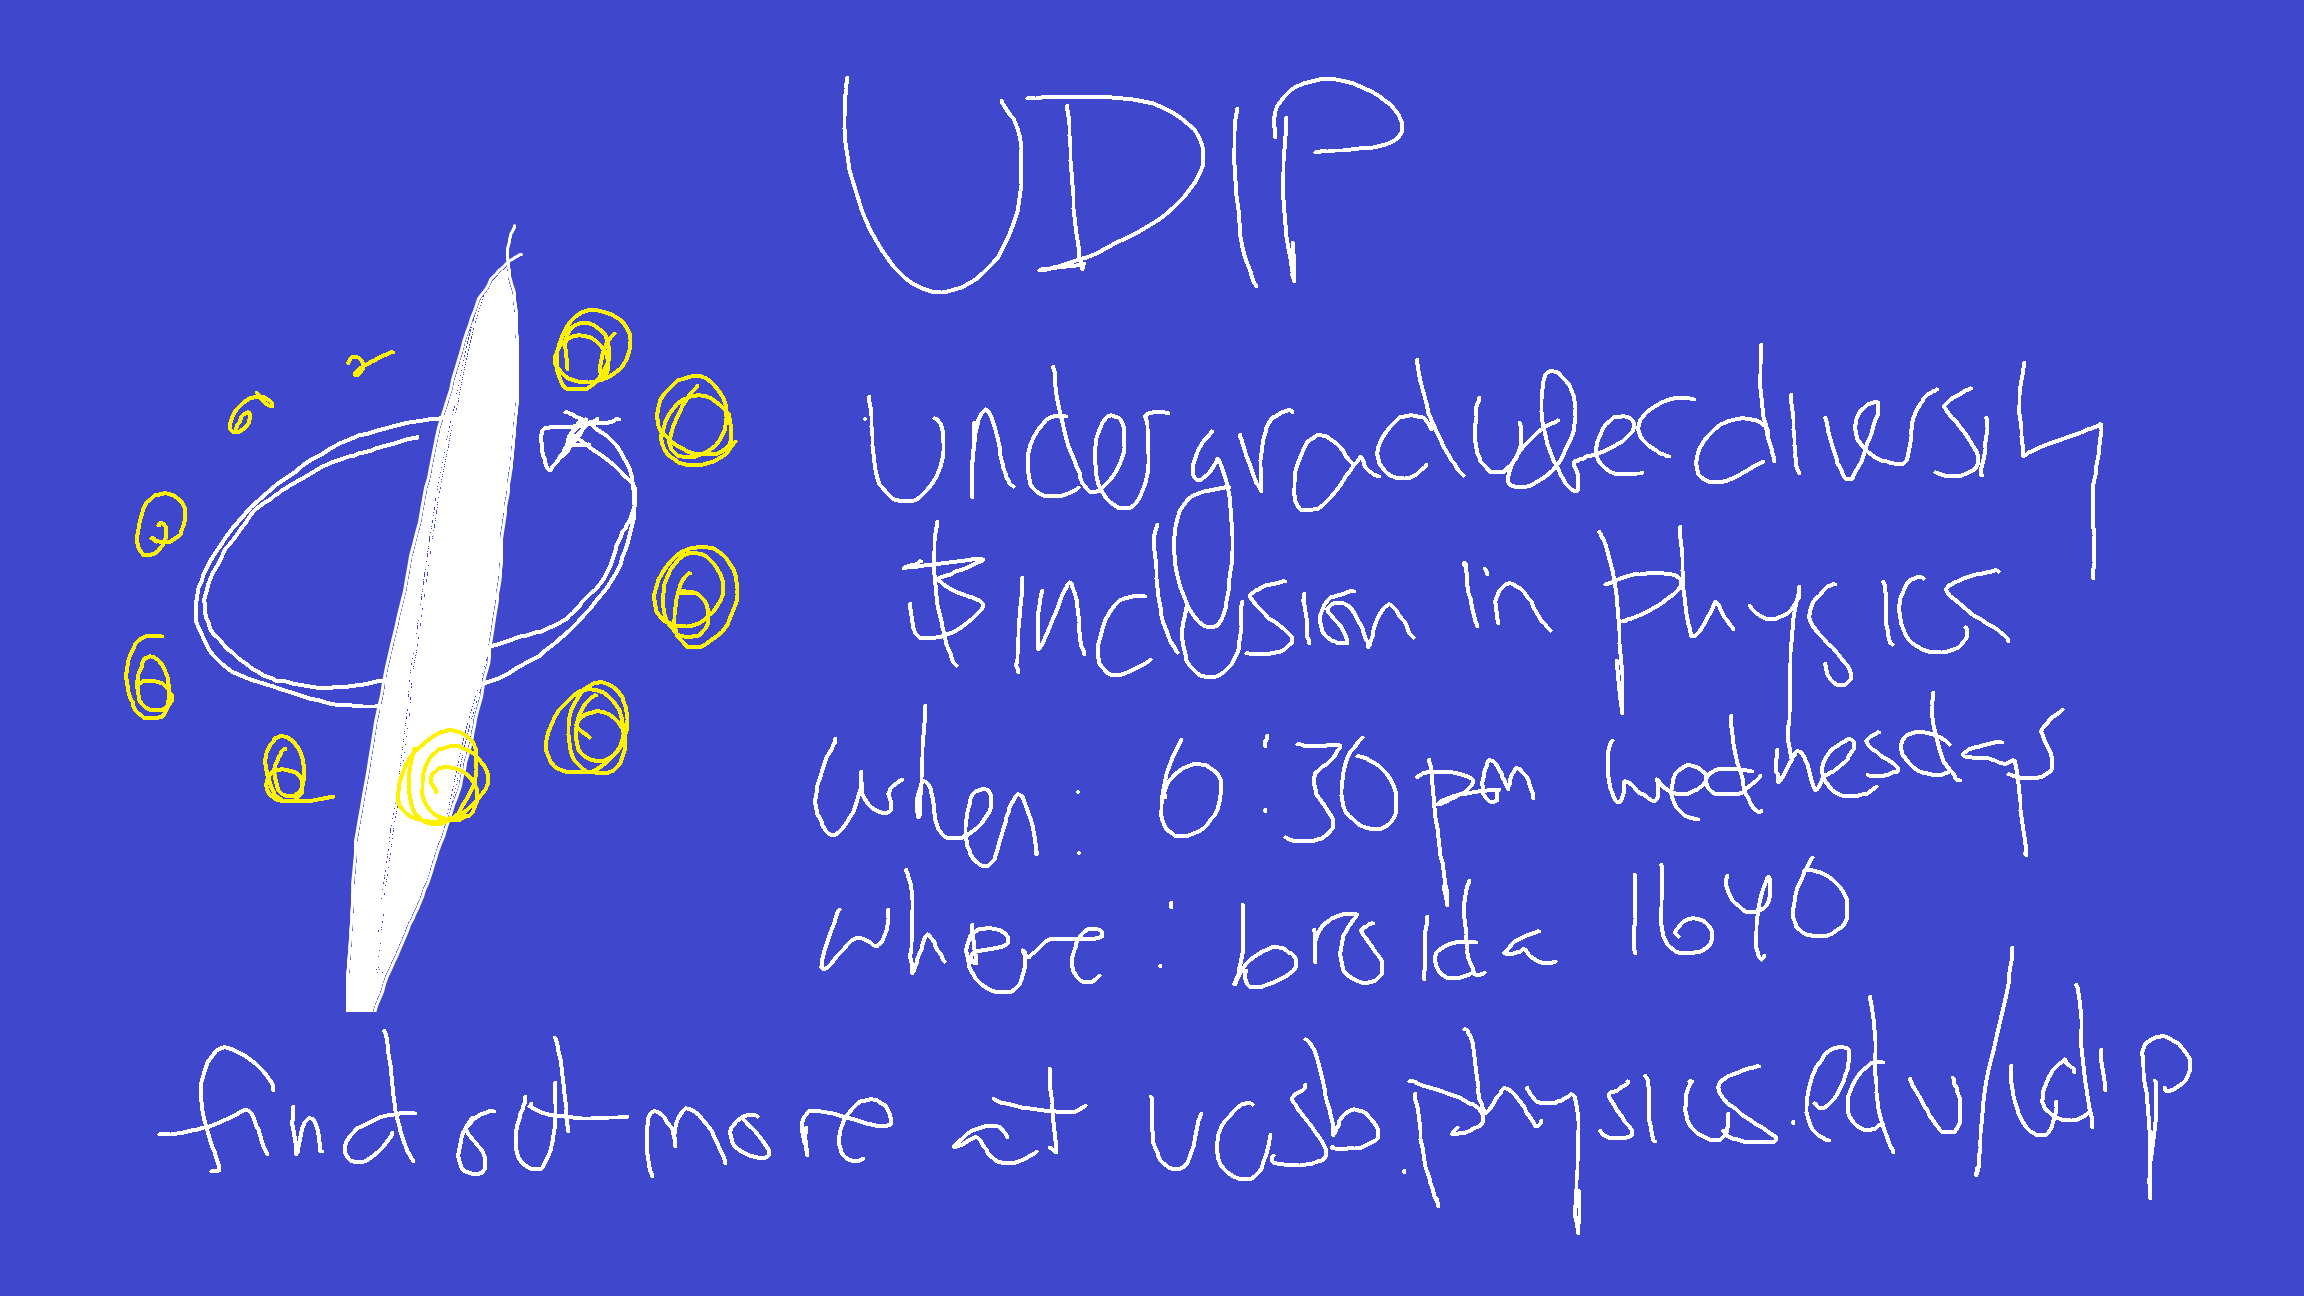 UDIP
undergraduate diversity
& inclusion in physics
when: 6:30pm wednesdays
where: broida 1640
find out more at ucsb.physics.edu/udip